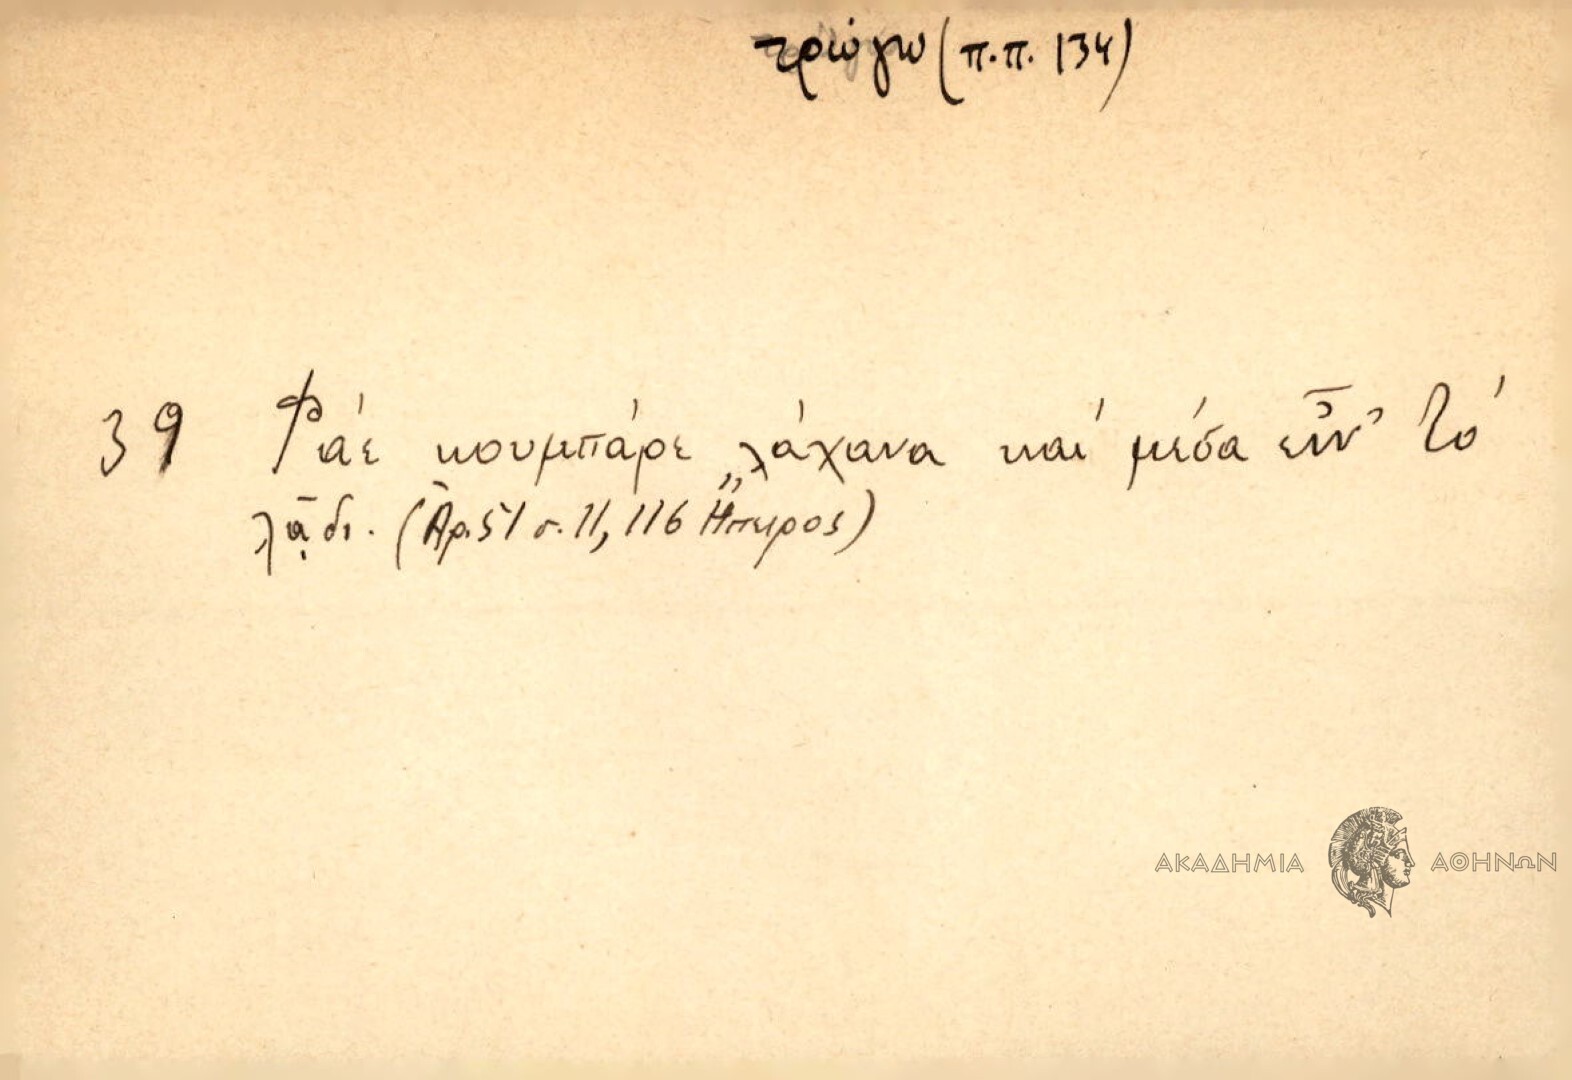 τρώγω (π.π. 134)
39 Φάε κουμπάρε λάχανα και μέσα εἶν' τό
λᾴδι. (Ἀρ. 51 σ. 11, 116 Ἤπειρος)
ΑΚΑΔΗΜΙΑ ΑΘΗΝΩΝ